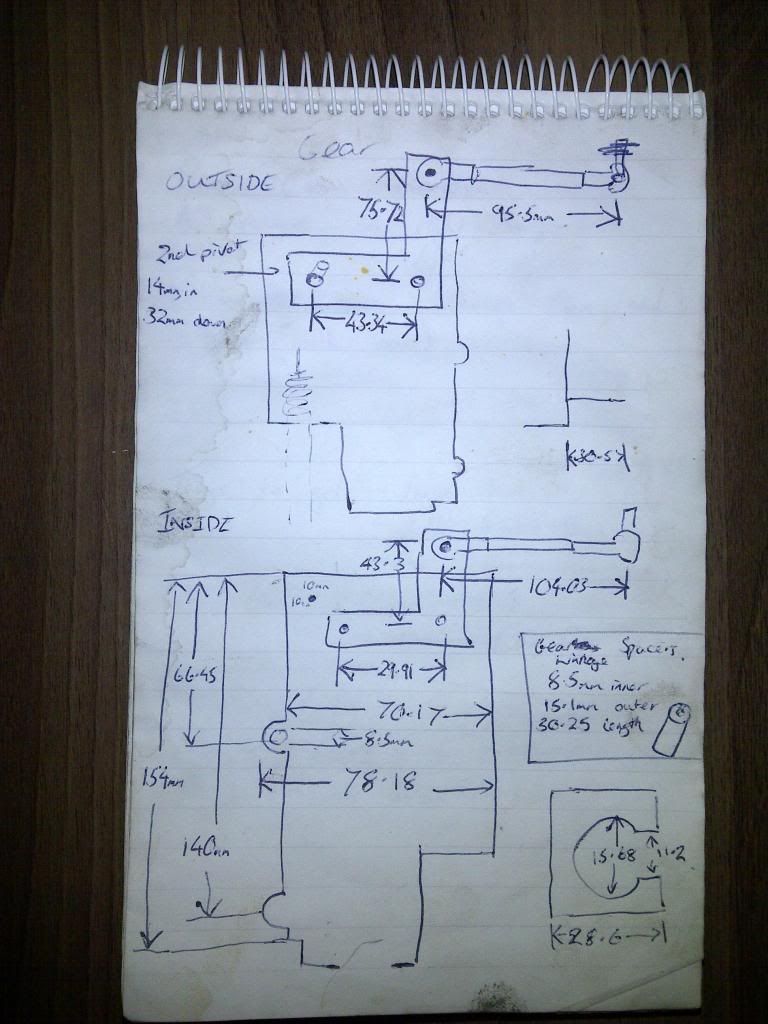 Gear
OUTSIDE
75.72
95.5mm
2nd pivot
14mm in
32mm down
43.34
30.57
INSIDE
43.3
104.03
10mm
10mm
29.91
66.45
70.17
8.5mm
78.18
154mm
140mm
Gear Spacers.
linkage
8.5mm inner
15.1mm outer
30.25 length
15.68
11.2
28.6